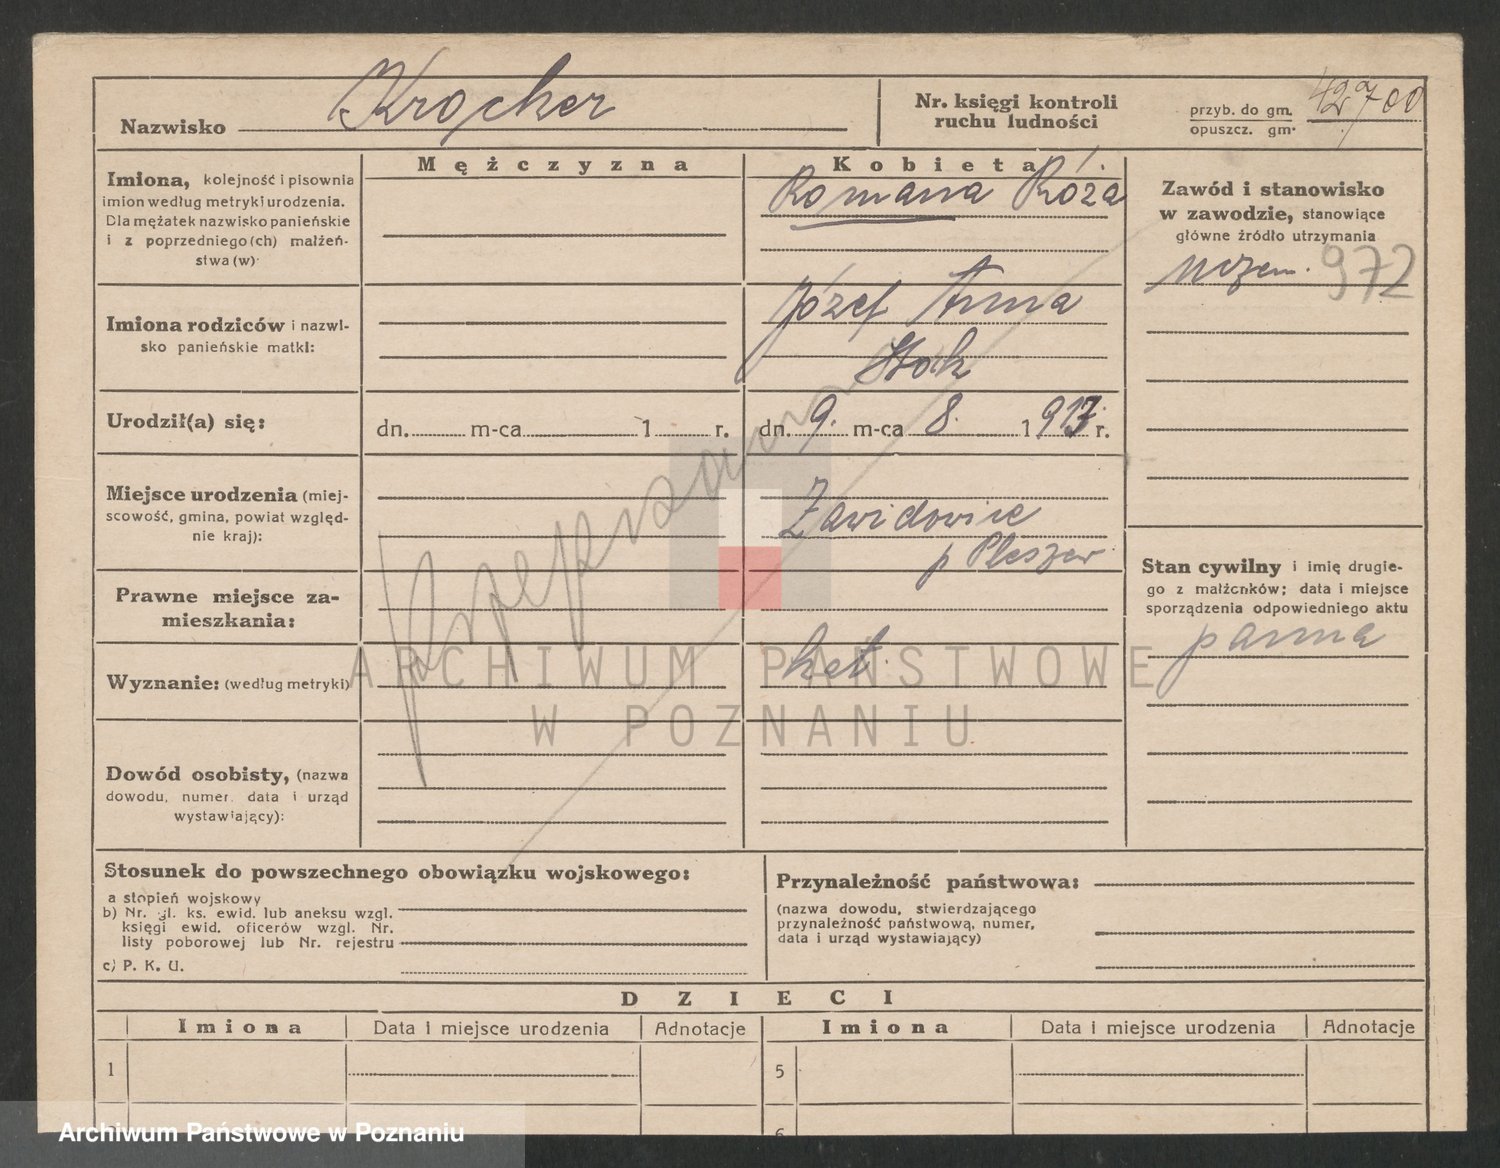 Nazwisko Krocher
Nr. księgi kontroli
ruchu ludności
przyb. do gm.
opuszcz. gm.
Mężczyzna
Kobieta
Imiona, kolejność i pisownia
imion według metryki urodzenia.
Dla mężatek nazwisko panieńskie
i z poprzedniego(ch) małżeń-
stwa(w)
Romana Róża
Zawód i stanowisko
w zawodzie, stanowiące
główne źródło utrzymania
972
Imiona rodziców i nazwi-
sko panieńskie matki:
Józef Anna
Urodził(a) się:
dn. m-ca 1 r.
dn. 9. m-ca 8. 1913 r.
Miejsce urodzenia (miej-
scowość, gmina, powiat względ-
nie kraj):
Zawidowice
p Pleszew
Stan cywilny i imię drugie-
go z małżonków; data i miejsce
sporządzenia odpowiedniego aktu
panna
Prawne miejsce za-
mieszkania:
Wyznanie: (według metryki)
Przepisano
ARCHIWUM PAŃSTWOWE
W POZNANIU
Dowód osobisty, (nazwa
dowodu, numer, data i urząd
wystawiający):
Stosunek do powszechnego obowiązku wojskowego:
a stopień wojskowy
b) Nr. gl. ks. ewid. lub aneksu wzgl.
księgi ewid. oficerów wzgl. Nr.
listy poborowej lub Nr. rejestru
c) P. K. U.
Przynależność państwowa:
(nazwa dowodu, stwierdzającego
przynależność państwową, numer,
data i urząd wystawiający)
DZIECI
Imiona Data i miejsce urodzenia Adnotacje Imiona Data i miejsce urodzenia Adnotacje
1
5
6
Archiwum Państwowe w Poznaniu